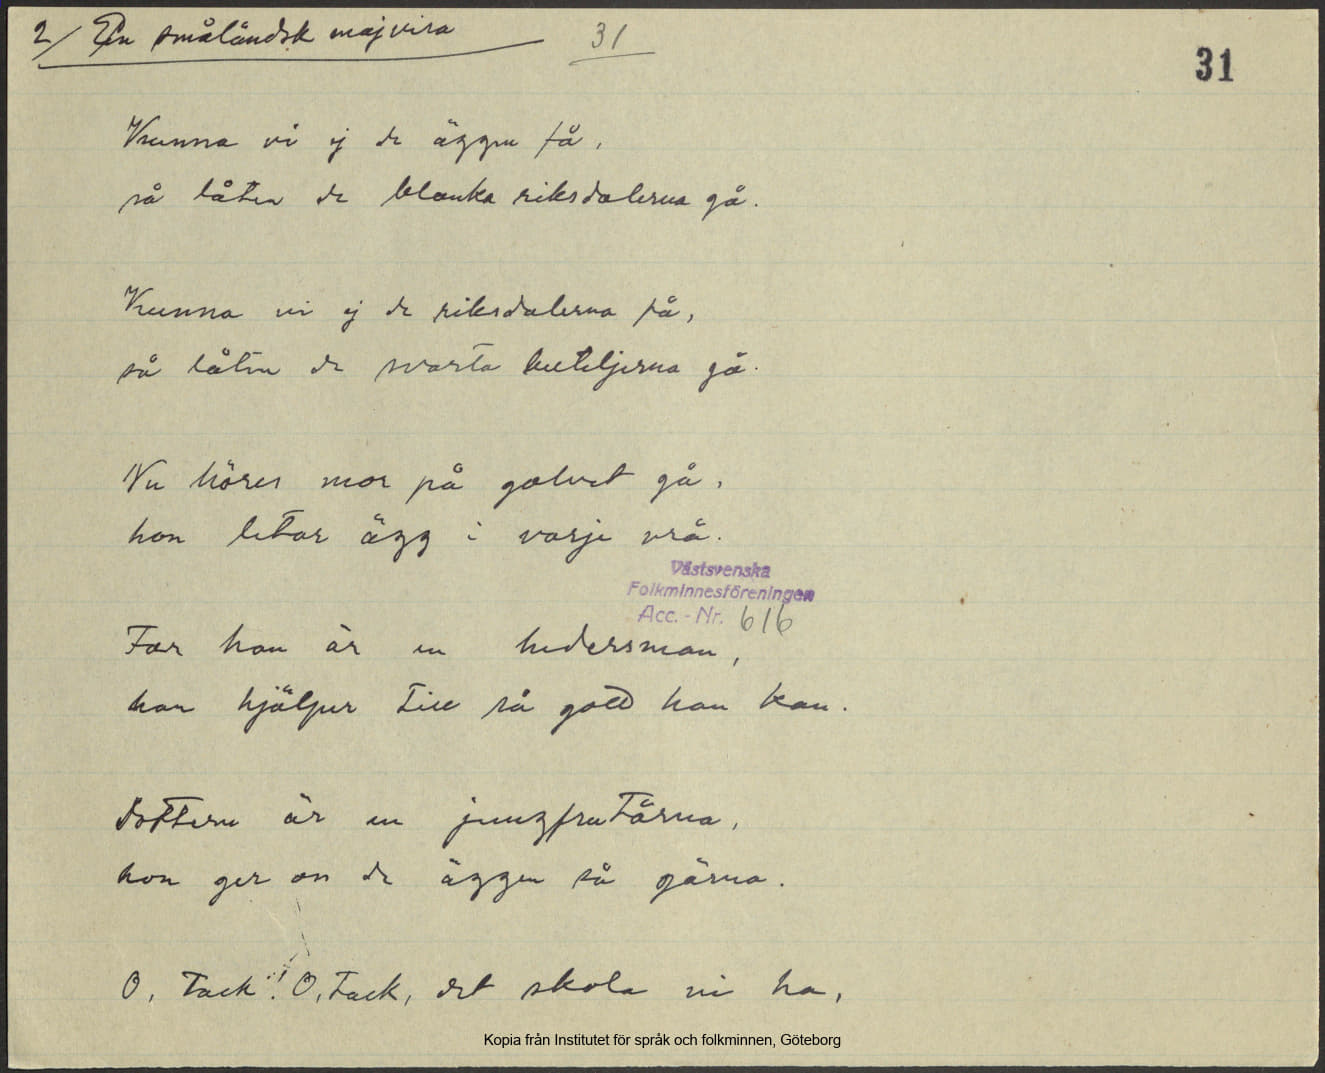 2/ En småländsk majvisa
31
31
Kunna vi ej de äggen få,
så låten de blanka riksdalerna gå.
Kunna vi ej de riksdalerna få,
så låten de svarta buteljerna gå.
Nu höres mor på golvet gå,
hon letar ägg i varje vrå.
Västsvenska
Folkminnesföreningen
Acc. - Nr. 616
Far han är en hedersman,
han hjälper till så gott han kan.
Dottern är en jungfrutärna,
hon ger oss de äggen så gärna.
O, tack! O, tack, det skola vi ha,
Kopia från Institutet för språk och folkminnen, Göteborg